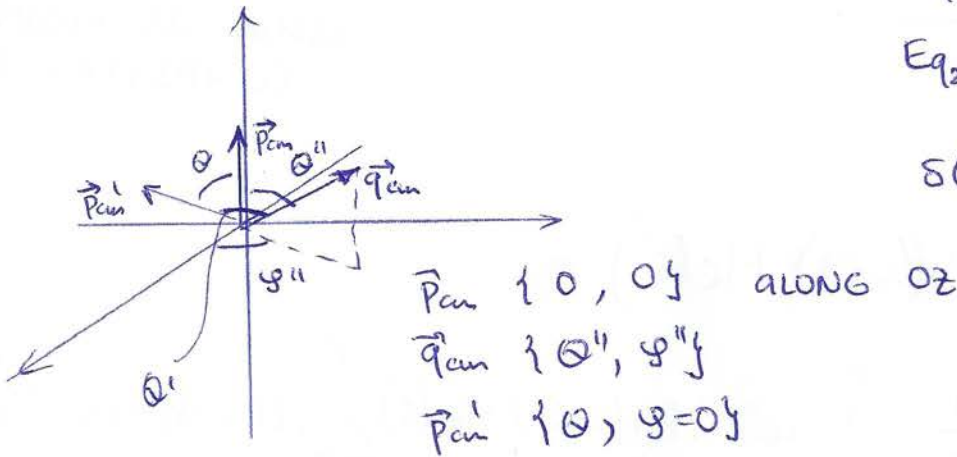 Eq₂
δ(
θ p⃗cm θ''
p⃗cm' q⃗cm
φ''
p⃗cm {0, 0} ALONG OZ
θ' q⃗cm {θ'', φ''}
p⃗cm' {θ, φ=0}